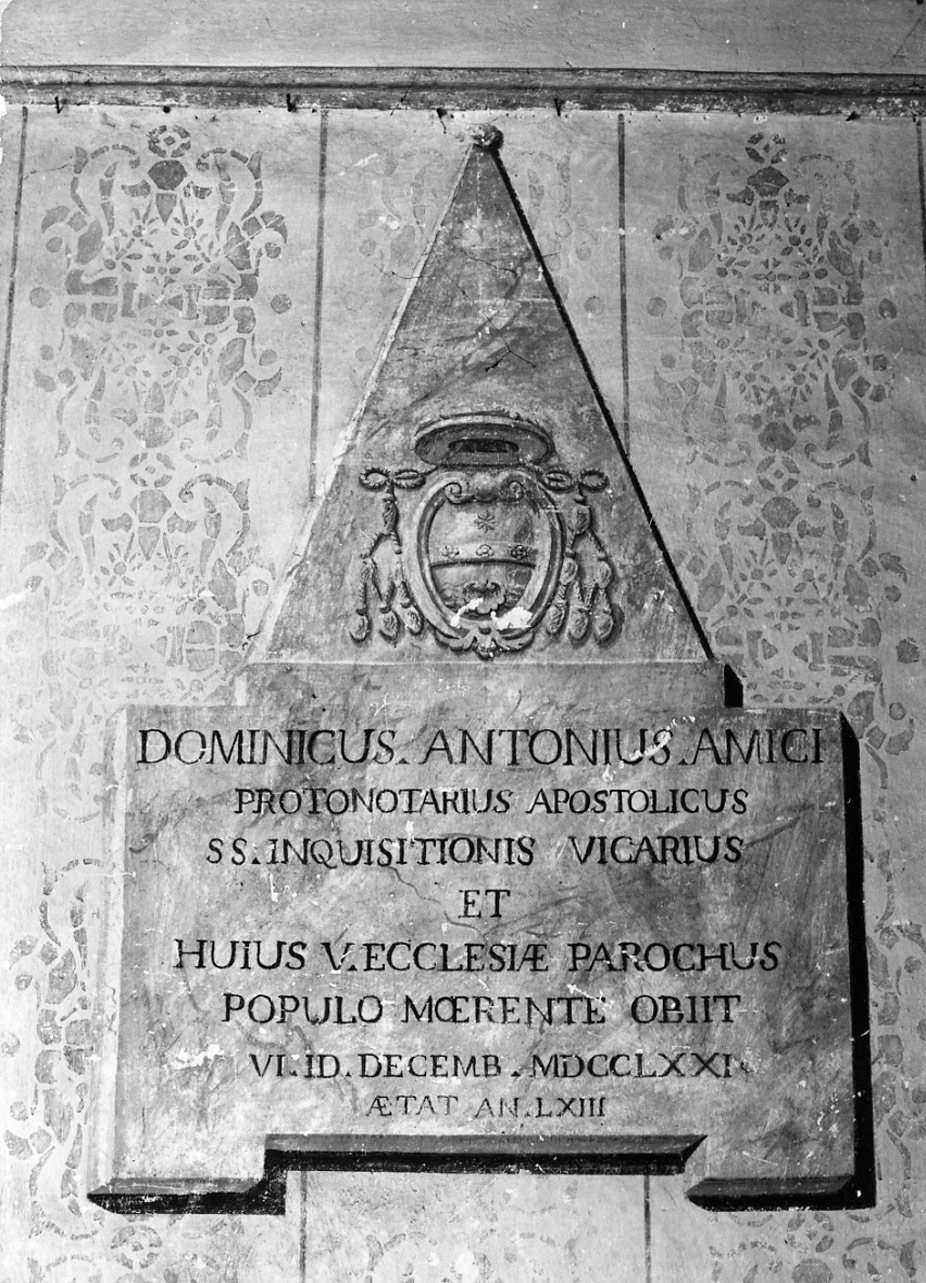 DOMINICUS. ANTONIUS. AMICI
PROTONOTARIUS APOSTOLICUS
SS. INQUISITIONIS VICARIUS
ET
HUIUS V. ECCLESIÆ PAROCHUS
POPULO MŒRENTE OBIIT
VI. ID. DECEMB. MDCCLXXI.
ÆTAT AN. LXIII